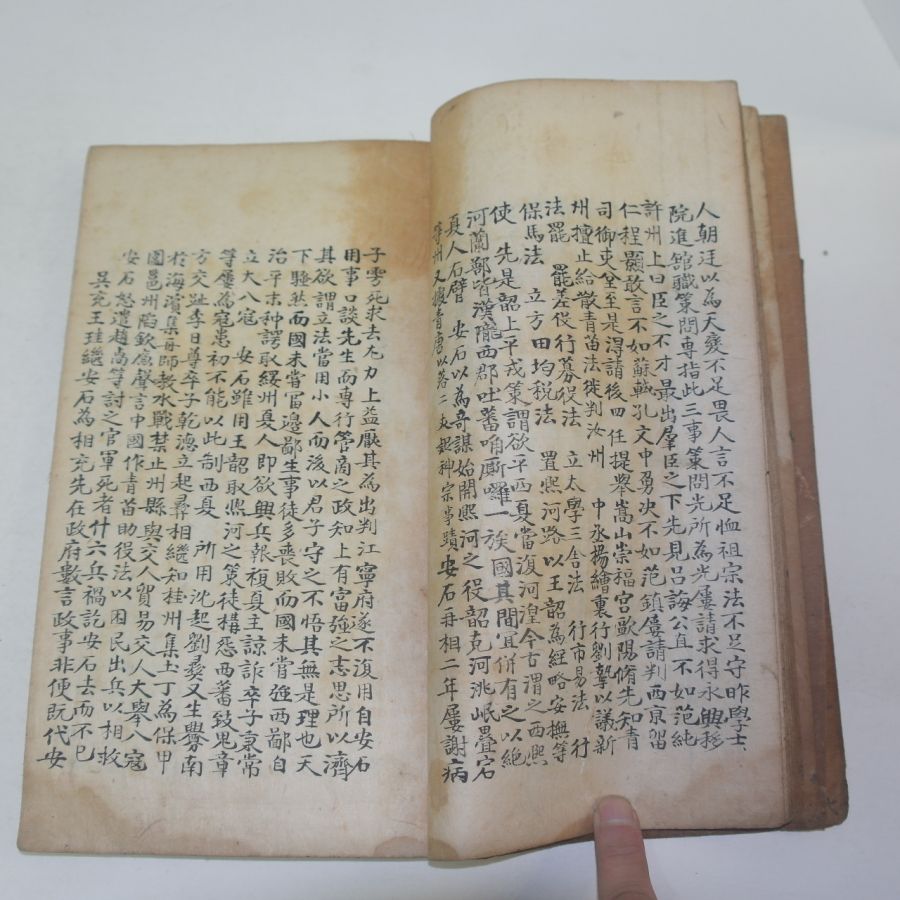 人朝廷以為天變不足畏人言不足恤祖宗法不足守昨學士
院進館職策問專指此三事策問光所為光屢請求得永興移
許州上曰臣之不才最出羣臣之下先見呂誨公直不如范純
仁程顥敢言不如蘇軾孔文中勇決不如范鎮屢請判西京留
司御史臺至是得請後四任提舉嵩山崇福宮歐陽脩先知青
州擅止給散青苗法徙判汝州 中丞楊繪裏行劉摯以議新
法罷 罷差役行募役法 立太學三舍法 行市易法 行
保馬法 立方田均稅法 置熙河路以王韶為經略安撫等
使 先是韶上平戎策謂欲平西夏當復河湟今古渭之西熙
河蘭鄯皆漢隴西郡吐蕃唃厮囉一族國其間宜併有之以絶
夏人右臂 安石以為奇謀始開熙河之役韶克河洮岷疊宕
等州又據青唐以落二夫 神宗事蹟安石再相二年屢謝病
子雱死求去尢力上益厭其為出判江寧府遂不復用自安石
用事口談先生而專行管商之政知上有富強之志思所以濟
其欲謂立法當用小人而後以君子守之不悟其無是理也天
下騷然而國未嘗富邊鄙生事徒多喪敗而國未嘗強西鄙自
治平末种諤取綏州夏人即欲興兵報複夏主諒訴卒子秉常
立大入寇 安石雖用王韶取熙河之策徒構怨西蕃 鬼章
等屢為寇患初不能以此制西夏 所用沈起劉彛又生釁南
方交趾李日尊卒子乾德立起尋相繼知桂州集土丁為保甲
於海濱集舟師教水戰禁止州縣與交人貿易交人大舉入寇
國邕州陷欽廉聲言中國作青苗助役法以困民出兵以相救
安石怒遣趙卨等討之官軍死者什六兵禍訖安石去而不已
吳充王珪繼安石為相充先在政府數言政事非便既代安